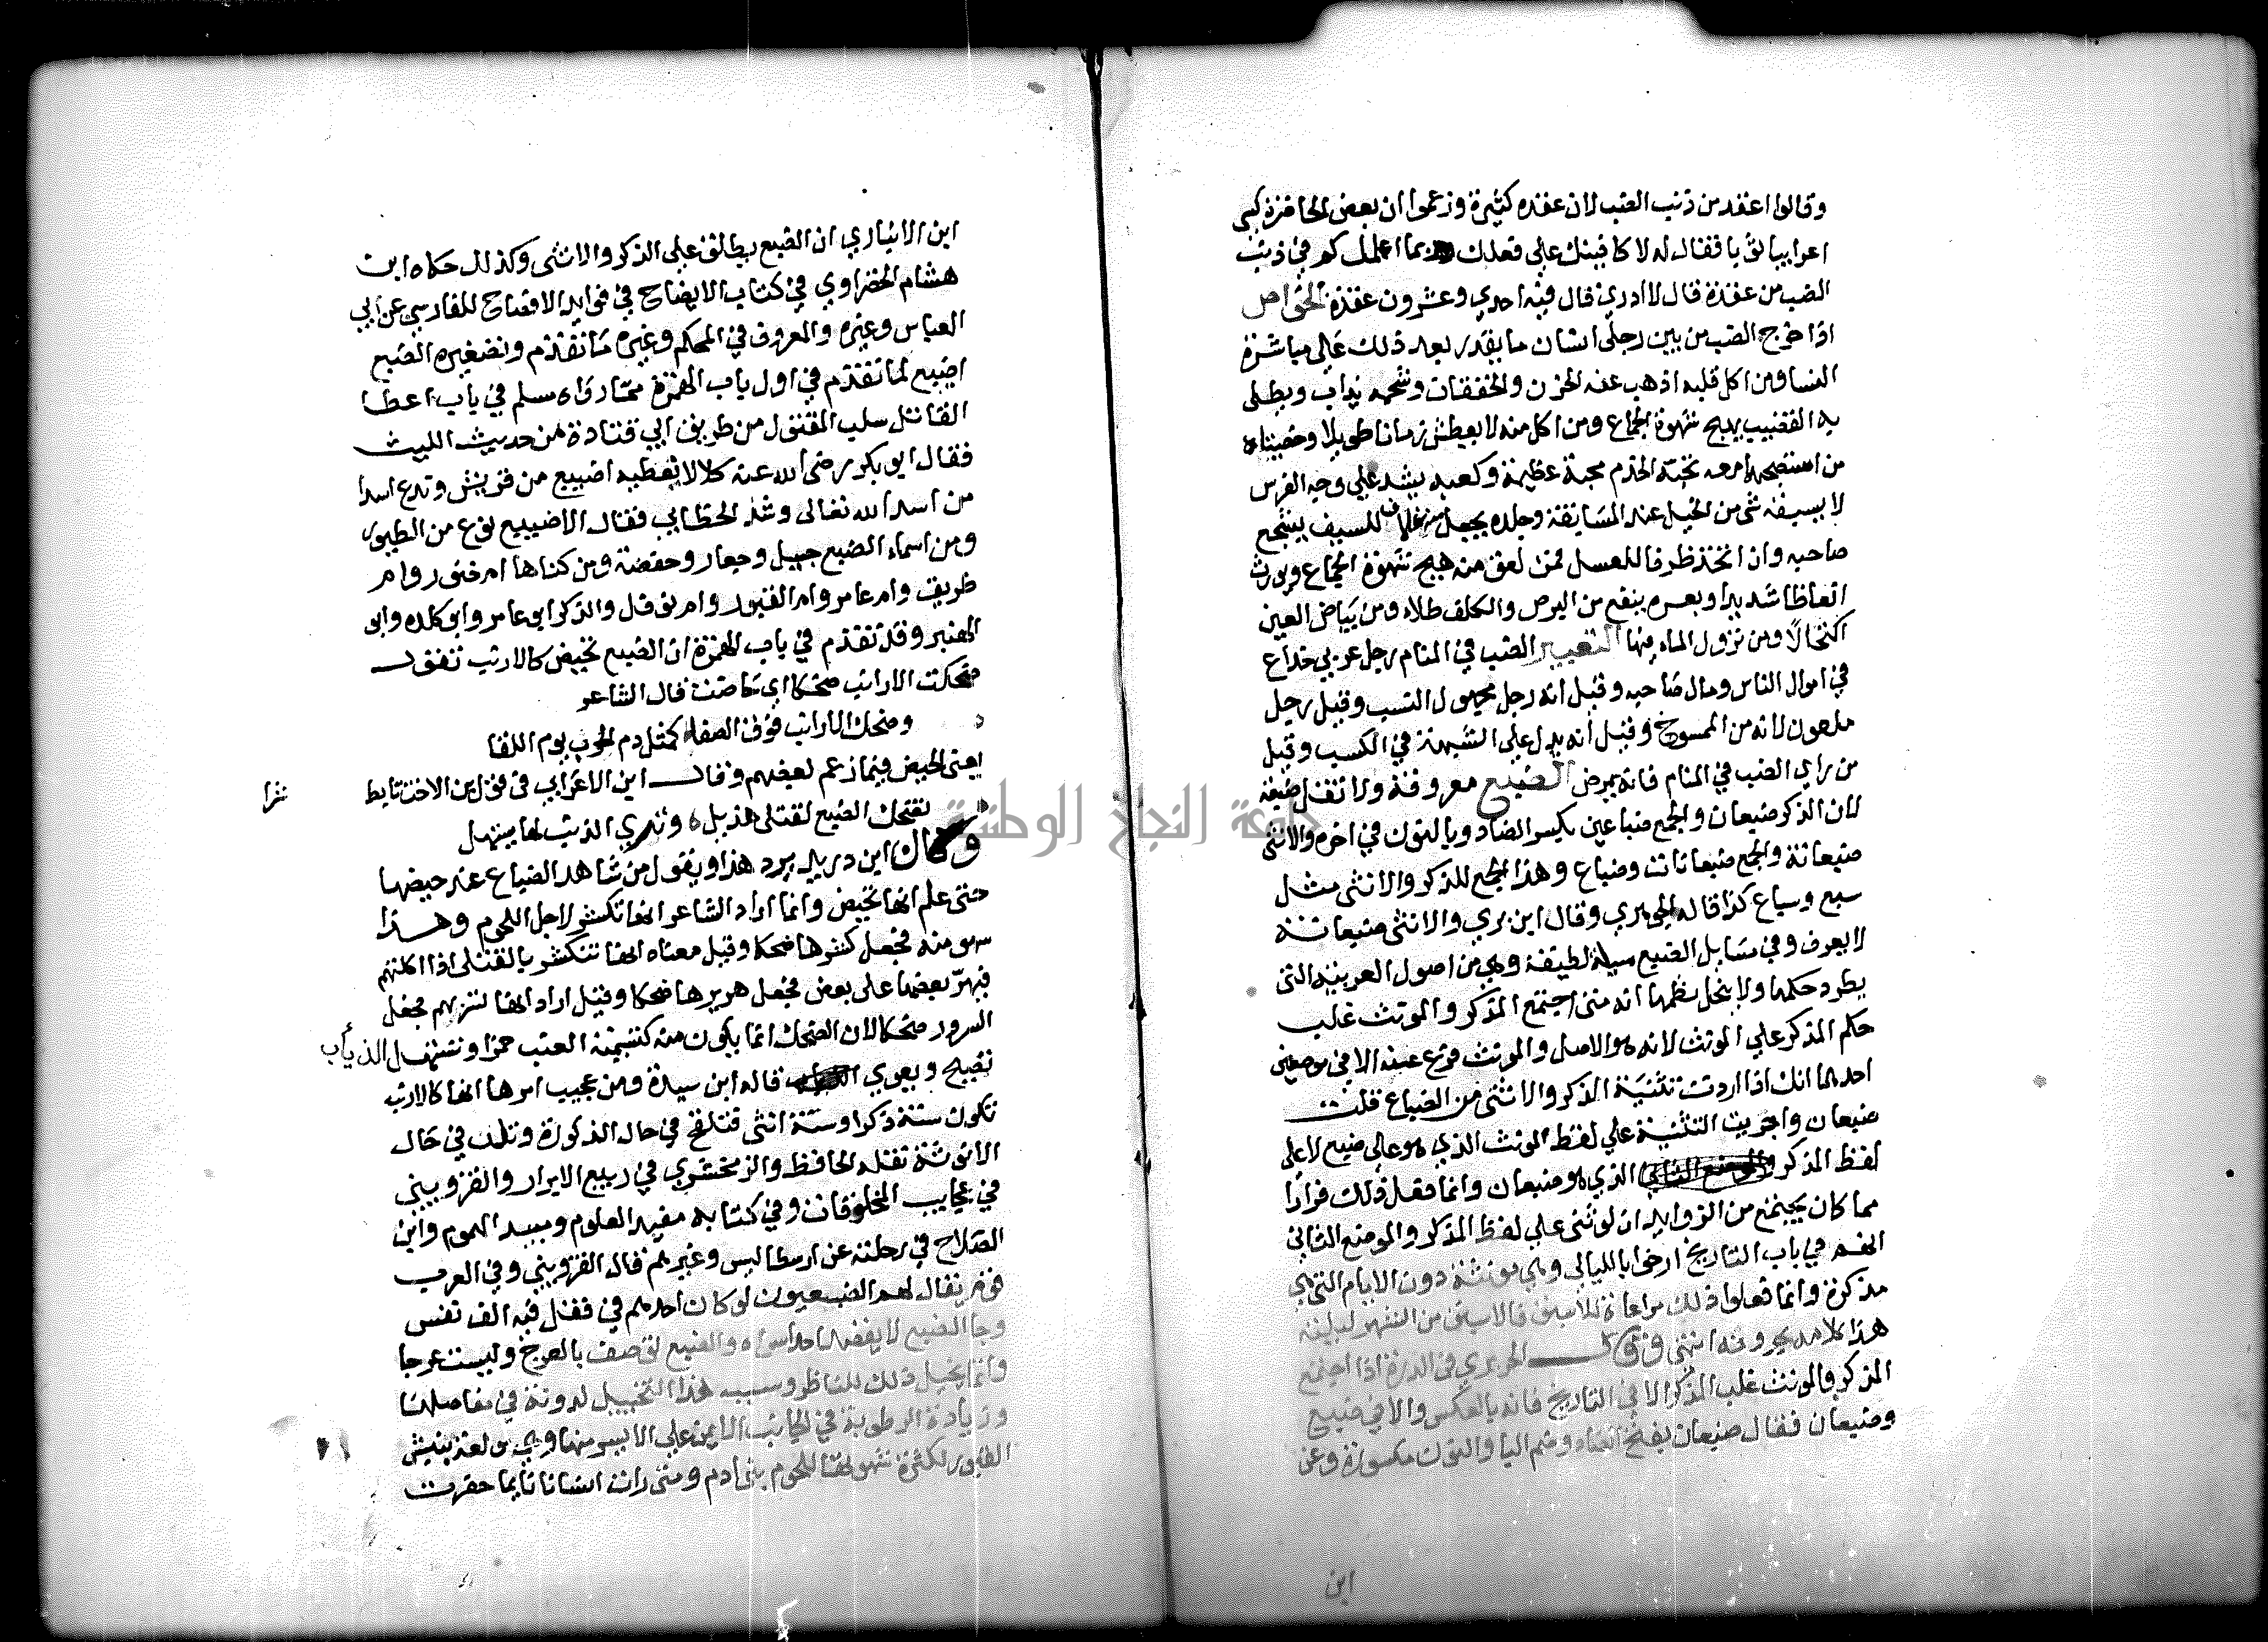 وقالوا اعقد من ذنب الضب لان عقده كثيرة وزعموا ان بعض الحاضرة كسى
اعرابيا ثوبا فقال له لاكافينك على فعلك بما اعلمك كم في ذنب
الضب من عقدة قال لا ادري قال فيه احدي وعشرون عقدة الخواص
اذا خرج الضب من بين رجلى انسان ما يقدر بعد ذلك على مباشرة
النسا ومن اكل قلبه اذهب عنه الحزن والخفقان وشحمه يذاب ويطلى
به القضيب يهيج شهوة الجماع ومن اكل منه لا يعطش زمانا طويلا وخصيتاه
من استصحبها معه تحبه الخدم محبة عظيمة وكعبه يشد على وجه الفرس
لا يسبقه شى من الخيل عند المسابقة وجلده يجعل منه غلاف للسيف يشجع
صاحبه وان اتخذ ظرفا للعسل فمن لعق منه هيج شهوة الجماع ويورث
انعاظا شديدا وبعره ينفع من البرص والكلف طلاء ومن بياض العين
اكتحالا ومن نزول الماء فيها التعبير الضب في المنام رجل عربي خداع
في اموال الناس ومال صاحبه وقيل انه رجل مجهول النسب وقيل رجل
ملعون لانه من المسوخ وقيل انه يدل على الشبهة في الكسب وقيل
من راي الضب في المنام فانه يمرض الضبع معروفة ولا تقل ضبعة
لان الذكر ضبعان والجمع ضباعين بكسر الضاد وبالنون في اخره والانثى
ضبعانة والجمع ضبعانات وضباع وهذا الجمع للذكر والانثى مثل
سبع وسباع كذا قاله الجوهري وقال ابن بري والانثى ضبعانة
لا يعرف وفي مسايل الضبع مسيلة لطيفة وهي من اصول العربية التى
يطرد حكمها ولا ينحل نظمها انه متى اجتمع المذكر والمونث غلب
حكم المذكر علي المونث لانه هو الاصل والمونث فرع عنه الا في موضعين
احدهما انك اذا اردت تثنية الذكر والانثى من الضباع قلت
ضبعان واجريت التثنية علي لفظ المونث الذي هو على ضبع لا على
لفظ المذكر الذي هو ضبعان وانما فعل ذلك فرارا
مما كان يجتمع من الزوايد ان لو ثنى علي لفظ المذكر والموضع الثانى
انهم في باب التاريخ ارخوا بالليالى وهي مونثة دون الايام التى هي
مذكرة وانما فعلوا ذلك مراعاة للاسبق فالاسبق من الشهر ليليه
هذا كلامه بحروفه انتهى وقال الحريري في الدرة اذا اجتمع
المذكر والمونث غلب المذكر الا في التاريخ فانه بالعكس والا في ضبع
وضبعان فقال ضبعان بفتح الضاد وضم البا والنون مكسورة وعن
ابن
ابن الانباري ان الضبع يطلق على الذكر والانثى وكذلك حكاه ابن
هشام الخضراوي في كتاب الايضاح في فوايد الافصاح للفارسى عن ابي
العباس وغيره والمعروف في المحكم وغيره ما تقدم وتصغيره الضبع
اضيبع لما تقدم في اول باب الهمزة مما رواه مسلم في باب اعطا
القاتل سلب المقتول من طريق ابي قتادة من حديث الليث
فقال ابو بكر رضى الله عنه كلا لا نعطيه اضيبع من قريش وتدع اسدا
من اسد الله تعالى وشذ الخطابي فقال الاضيبع نوع من الطيور
ومن اسماء الضبع جبيل وجعار وحفصة ومن كناها ام خنور وام
طريف وام عامر وام القبور وام نوفل والذكر ابو عامر وابو كلده وابو
الهنبر وقد تقدم في باب الهمزة ان الضبع تحيض كالارنب تقول
ضحكت الارانب ضحكا اي حاضت قال الشاعر
وضحك الارانب فوق الصفا كمثل دم الجوف يوم اللقا
يعنى الحيض فيما زعم بعضهم وقال ابن الاعرابي في قول ابن الاخت تابط شرا
تضحك الضبع لقتلى هذيل وترى الذيب لها يستهل
وكان ابن دريد يرد هذا ويقول من شاهد الضباع عند حيضها
حتى علم انها تحيض وانما اراد الشاعر انها تكشر لاجل اللحوم وهذا
سهو منه فجعل كشرها ضحكا وقيل معناه انها تتكشر بالقتلى اذا اكلتهم
فيهر بعضها على بعض فجعل هريرها ضحكا وقيل اراد انها تسر بهم فجعل
السرور ضحكا لان الضحك انما يكون منه كتسمية العنب خمرا وتستهل الذياب
تصيح ويعوي قاله ابن سيدة ومن عجيب امرها انها كالارنب
تكون سنة ذكرا وسنة انثى فتلقح في حال الذكورة وتلد في حال
الانوثة نقله الجاحظ والزمخشري في ربيع الابرار والقزوينى
في عجايب المخلوقات وفي كتابه مفيد العلوم ومبيد الهموم وابن
الصلاح في رحلته عن ارسطاليس وغيرهم قال القزويني وفي العرب
قوم يقال لهم الضبعيون لو كان احدهم في قفل فيه الف نفس
وجا الضبع لا يقصد احدا سواه والضبع توصف بالعرج وليست عرجا
وانما يخيل ذلك للناظر وسبب هذا التخييل لدونة في مفاصلها
وزيادة الرطوبة في الجانب الايمن علي الايسر منها وهي مولعة بنبش
القبور لكثرة شهوتها للحوم بنى ادم ومتى رات انسانا نايما حفرت
جامعة النجاح الوطنية